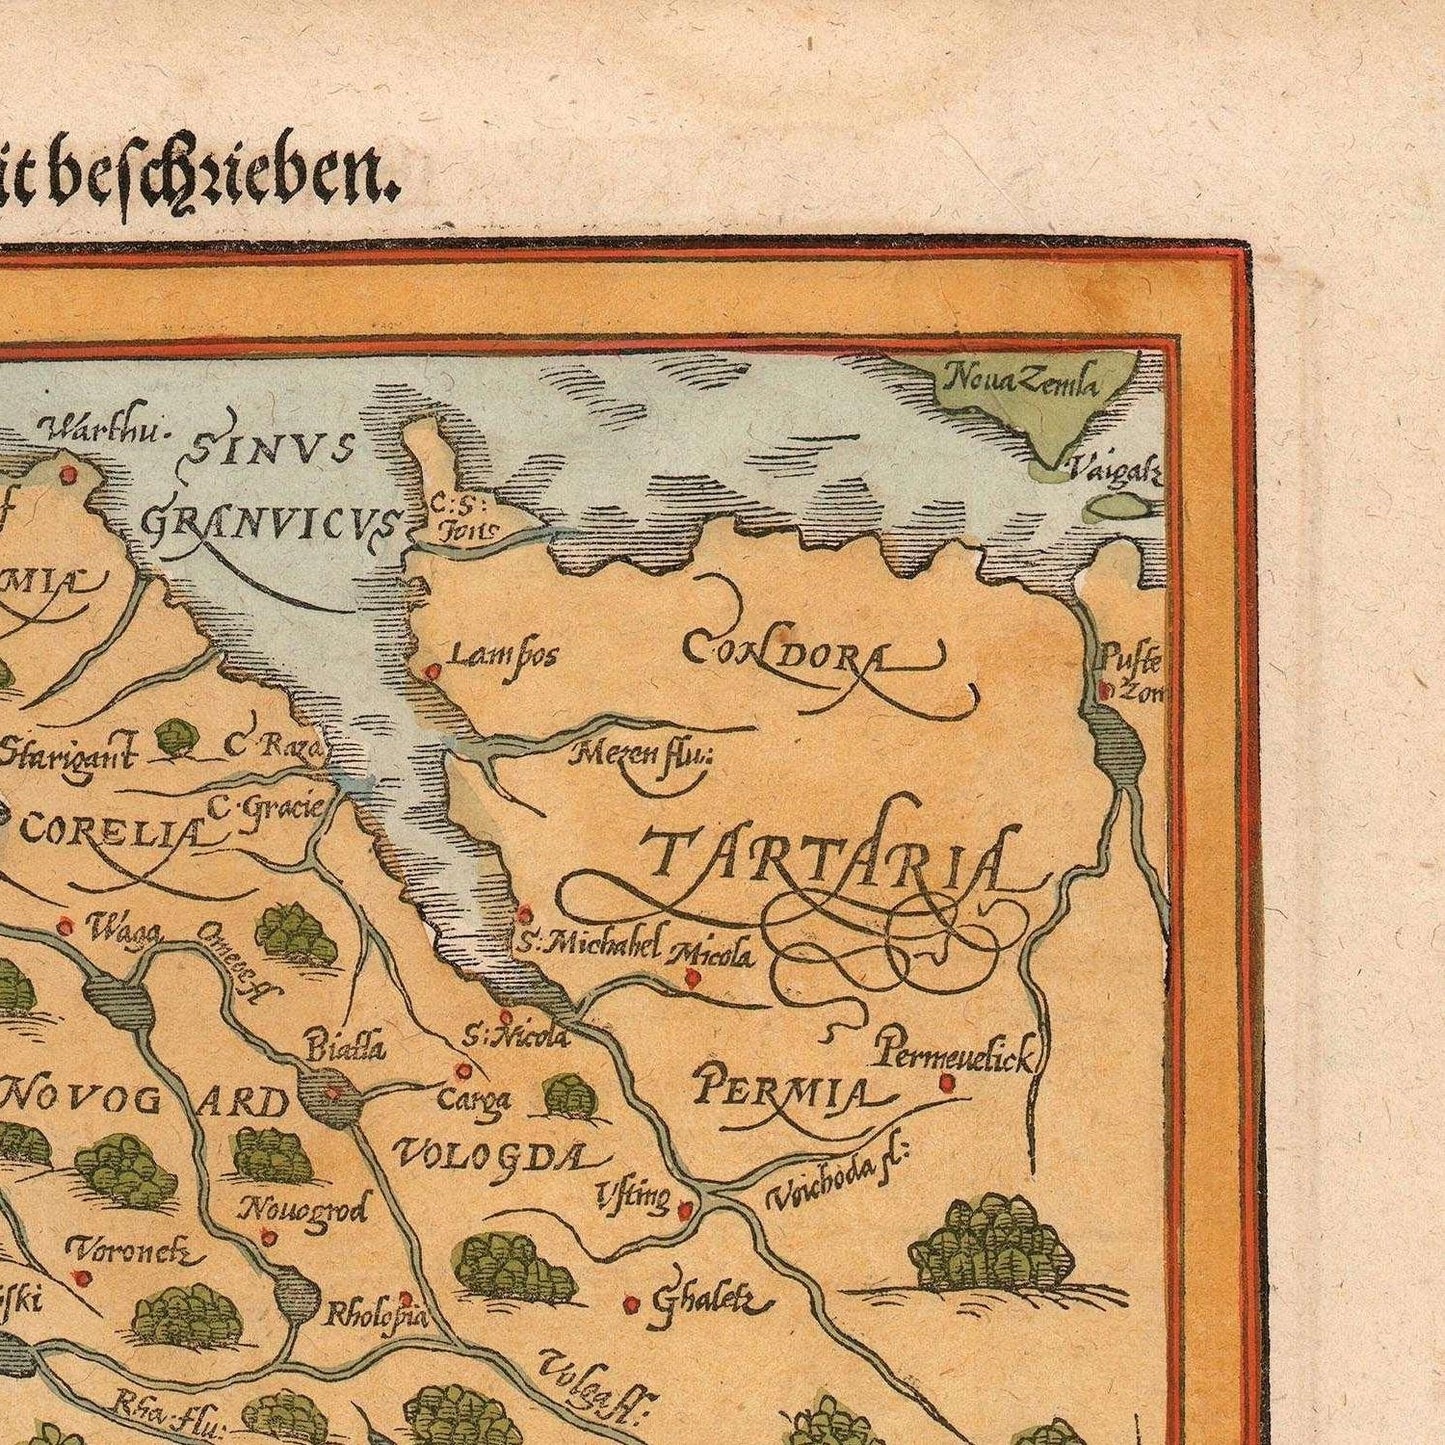 it beſchrieben.
Noua Zemla
Warthu.
SINVS
GRANVICVS
Vaigatz
C: S:
Fons
MIA
Lampos
CONDORA
Puſte
Zon
Starigant
C Raza
Mezen flu:
C. Gracie
CORELIA
TARTARIA
Waga
S: Michahel
Micola
Biaſſa
S: Nicola
Permeuelick
Carga
PERMIA
NOVOGARD
VOLOGDA
Voichoda fl:
Vſting
Nouogrod
Voronetz
Ghaletz
Rholopia
Volga fl:
Rha. flu: